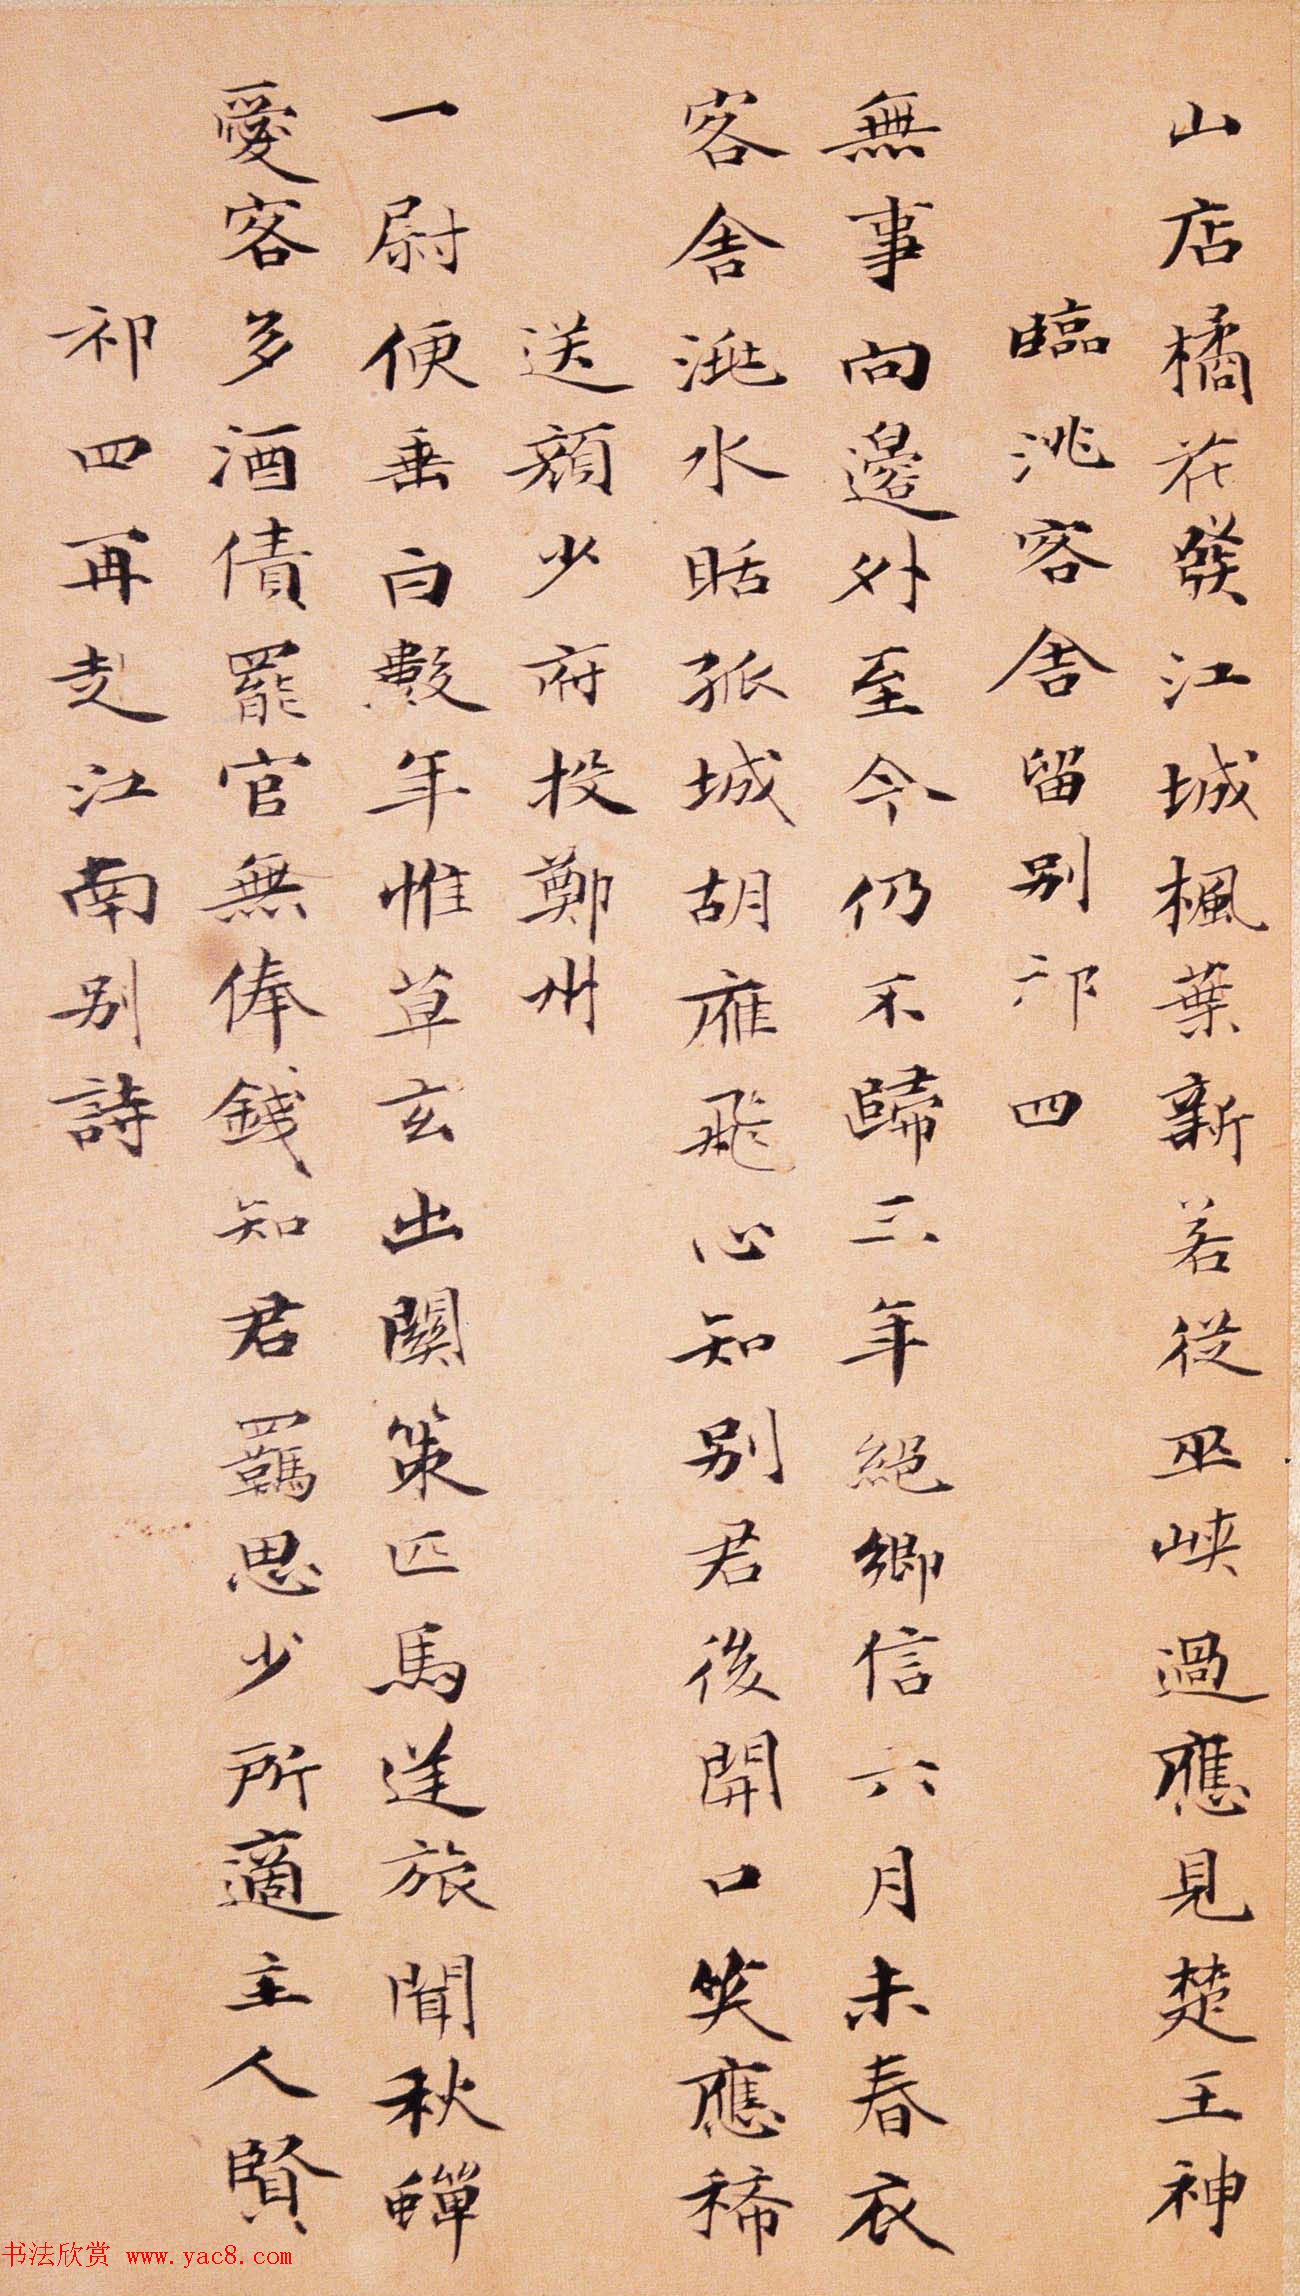 山店橘花發江城楓葉新若從巫峽過應見楚王神
臨洮客舍留別祁四
無事向邊外至今仍不歸三年絕鄉信六月未春衣
客舍洮水聒孤城胡雁飛心知別君後開口笑應稀
送顏少府投鄭州
一尉便垂白數年惟草玄出關策匹馬逆旅聞秋蟬
愛客多酒債罷官無俸錢知君羈思少所適主人賢
祁四再赴江南別詩
书法欣赏 www.yac8.com